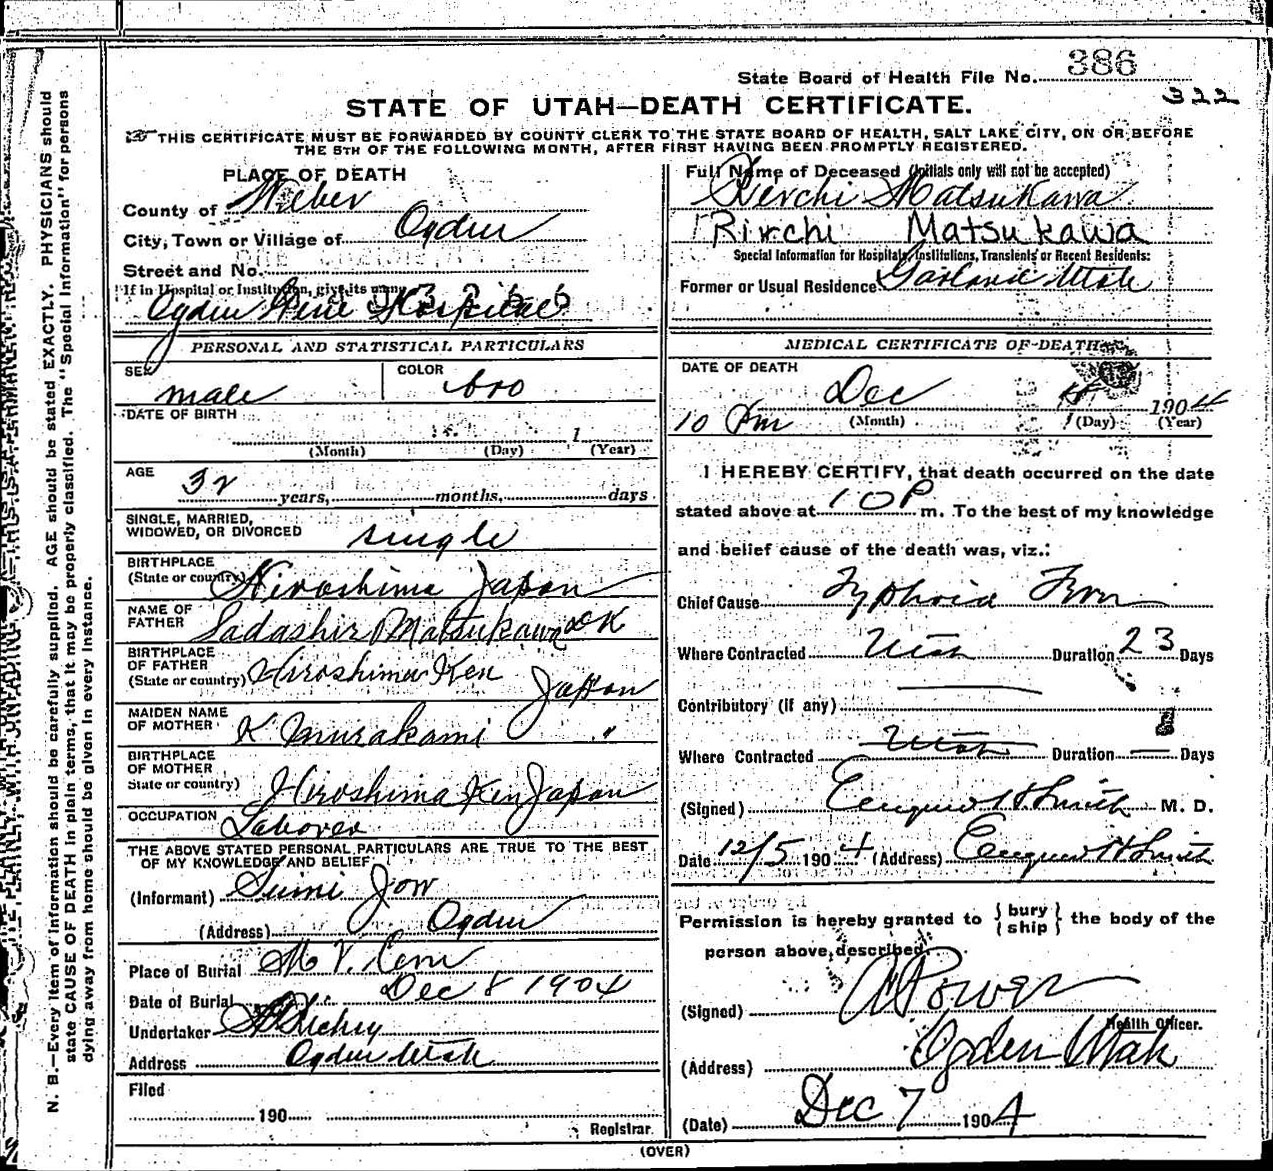 State Board of Health File No. 386
322
STATE OF UTAH—DEATH CERTIFICATE.
THIS CERTIFICATE MUST BE FORWARDED BY COUNTY CLERK TO THE STATE BOARD OF HEALTH, SALT LAKE CITY, ON OR BEFORE
THE 5TH OF THE FOLLOWING MONTH, AFTER FIRST HAVING BEEN PROMPTLY REGISTERED.
N. B.—Every item of information should be carefully supplied. AGE should be stated EXACTLY. PHYSICIANS should
state CAUSE OF DEATH in plain terms, that it may be properly classified. The "Special Information" for persons
dying away from home should be given in every instance.
PLACE OF DEATH
County of Weber
City, Town or Village of Ogden
Street and No.
If in Hospital or Institution, give its name
Ogden Hospital
PERSONAL AND STATISTICAL PARTICULARS
SEX male COLOR
DATE OF BIRTH
1
(Month) (Day) (Year)
AGE 32 years, months, days
SINGLE, MARRIED,
WIDOWED, OR DIVORCED single
BIRTHPLACE
(State or country) Hiroshima Japan
NAME OF
FATHER Sadashiro Matsukawa
BIRTHPLACE
OF FATHER
(State or country) Hiroshima Ken
Japan
MAIDEN NAME
OF MOTHER K Murakami "
BIRTHPLACE
OF MOTHER
State or country) Hiroshima Ken Japan
OCCUPATION Laborer
THE ABOVE STATED PERSONAL PARTICULARS ARE TRUE TO THE BEST
OF MY KNOWLEDGE AND BELIEF
(Informant) Sumi Jow
(Address) Ogden
Place of Burial Mt V. Cem
Date of Burial Dec 8 1904
Undertaker Richey
Address Ogden Utah
Filed
190
Registrar.
Full Name of Deceased (Initials only will not be accepted)
Matsukawa
Rirchi Matsukawa
Special Information for Hospitals, Institutions, Transients or Recent Residents:
Former or Usual Residence Garland Utah
MEDICAL CERTIFICATE OF DEATH
DATE OF DEATH
Dec 1904
10 Pm (Month) (Day) (Year)
I HEREBY CERTIFY, that death occurred on the date
stated above at 10 P m. To the best of my knowledge
and belief cause of the death was, viz.:
Chief Cause Typhoid Fever
Where Contracted Utah Duration 23 Days
Contributory (If any)
Where Contracted Utah Duration Days
(Signed) H. Smith M. D.
Date 12/5 1904 (Address) H Smith
Permission is hereby granted to {bury
ship} the body of the
person above described.
(Signed) A Power
Health Officer.
(Address) Ogden Utah
(Date) Dec 7 1904
(OVER)